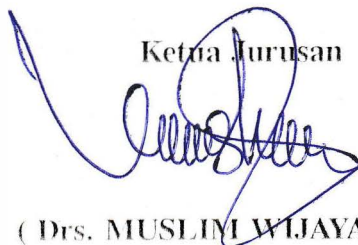 Ketua Jurusan
( Drs. MUSLIM WIJAYA